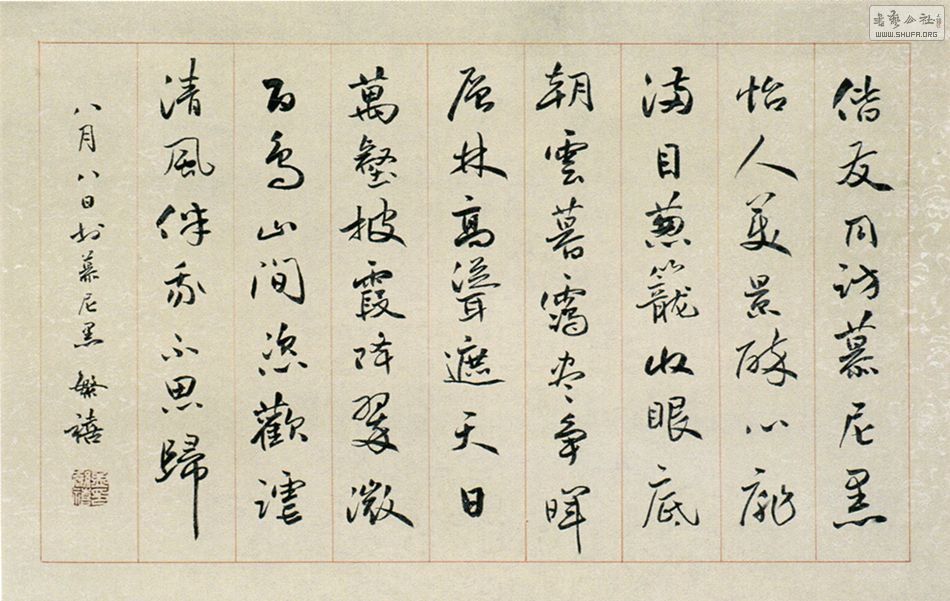 偕友同訪慕尼黑
怡人美景醉心扉
滿目蔥籠收眼底
朝雲暮靄尽爭暉
层林高聳遮天日
萬壑披霞降翠微
百鸟山间恣歡謔
清風伴我不思歸
八月八日於慕尼黑 繁禧
書藝公社
WWW.SHUFA.ORG